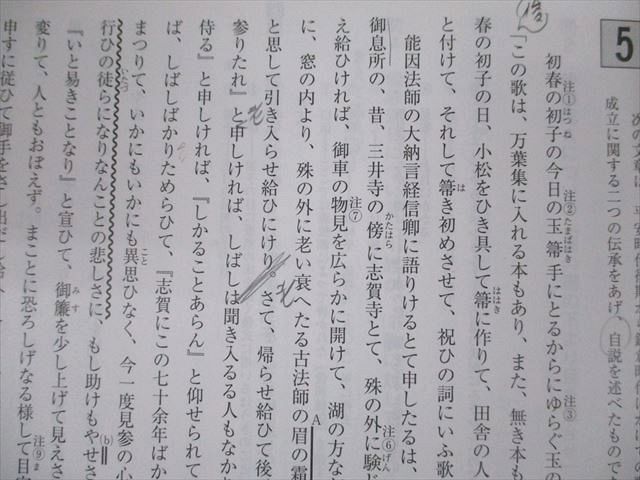 5
成立に関する二つの伝承をあげ、自説を述べたもので
初春の初子の今日の玉箒手にとるからにゆらぐ玉の
注① はつね 注② たまばはき 注③
「この歌は、万葉集に入れる本もあり、また、無き本も
春の初子の日、小松をひき具して箒に作りて、田舎の人
ははき
と付けて、それして箒き初めさせて、祝ひの詞にいふ歌
は
能因法師の大納言経信卿に語りけるとて申したるは、
御息所の、昔、三井寺の傍に志賀寺とて、殊の外に験じ
かたはら 注⑥ げん
え給ひければ、御車の物見を広らかに開けて、湖の方な
注⑦
に、窓の内より、殊の外に老い衰へたる古法師の眉の霜
A
と思して引き入らせ給ひにけり。さて、帰らせ給ひて後
参りたれ』と申しければ、しばしは聞き入るる人もなか
侍る』と申しければ、『しかることあらん』と仰せられて
ば、しばしばかりためらひて、『志賀にこの七十余年ばか
まつりて、いかにもいかにも異思ひなく、今一度見参の心
こと
行ひの徒らになりなんことの悲しさに、もし助けもやせさ
いたづ ⓑ
『いと易きことなり』と宣ひて、御簾を少し上げて見えさ
みす
変りて、人ともおぼえず。まことに恐ろしげなる様して目
注⑨
申すに従ひて御手をさし出だし給